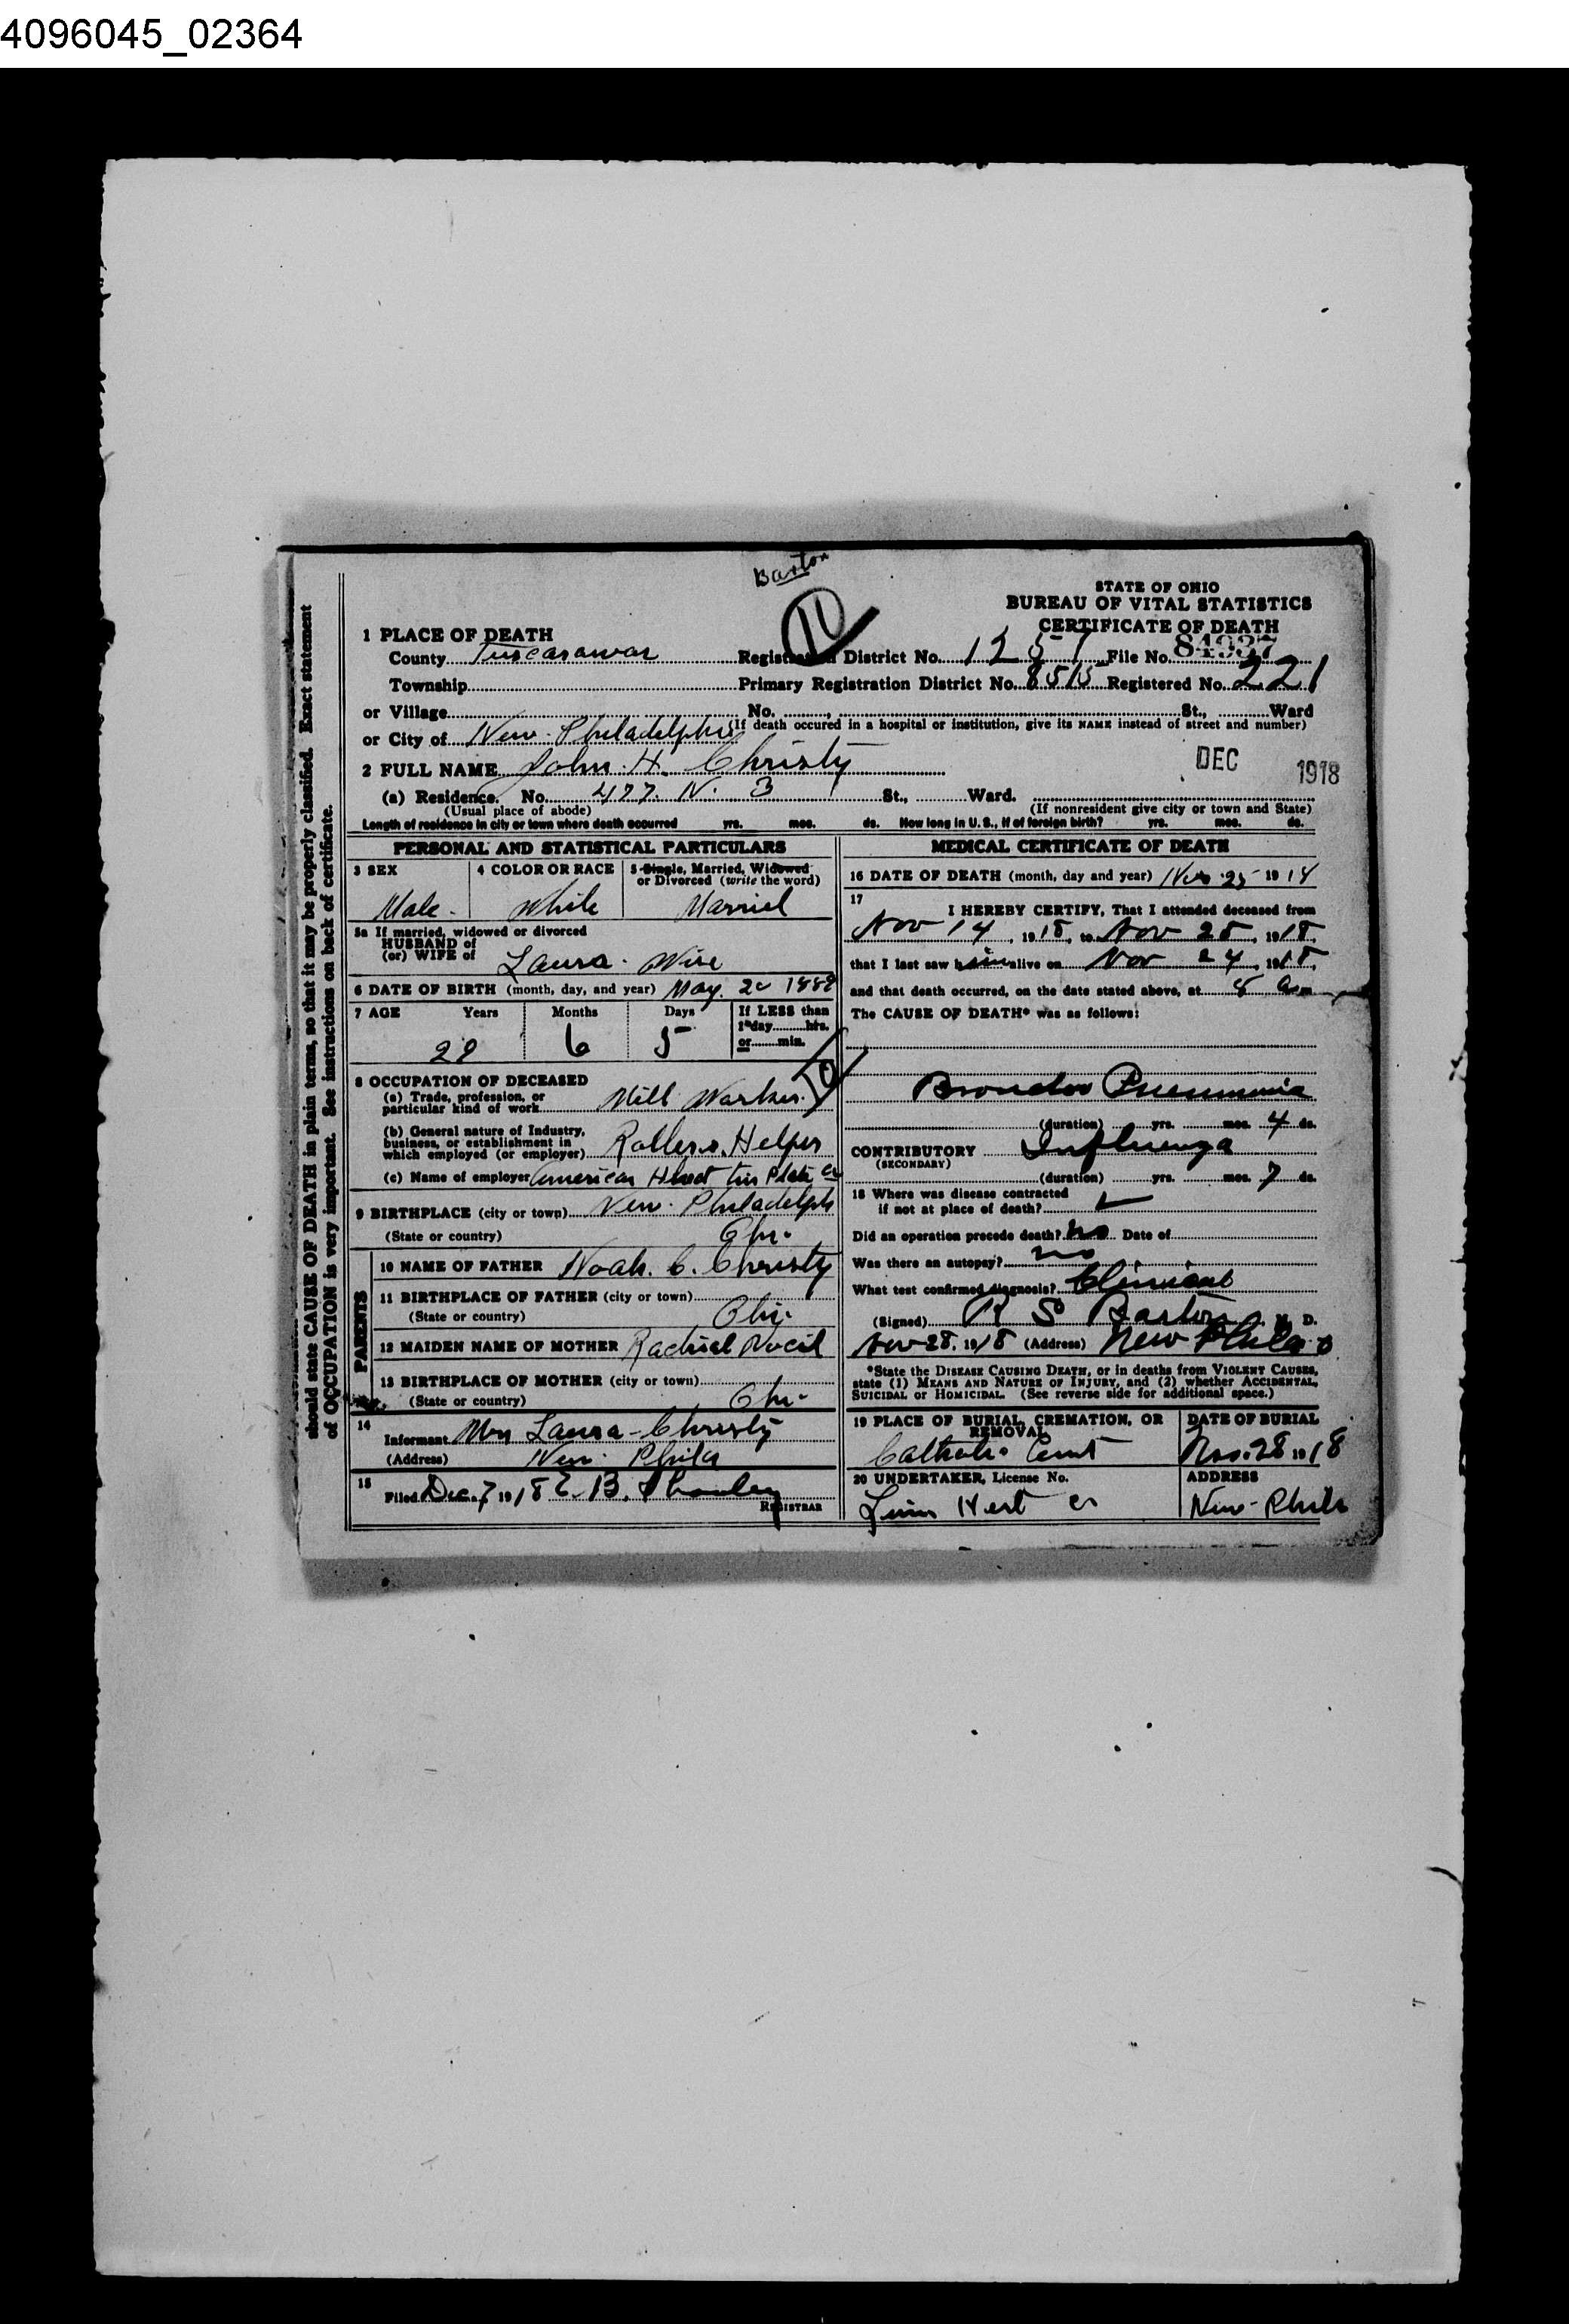 4096045_02364
Barton
11
STATE OF OHIO
BUREAU OF VITAL STATISTICS
CERTIFICATE OF DEATH
1 PLACE OF DEATH
County Tuscarawas Registration District No. 1257 File No. 84937
Township Primary Registration District No. 8515 Registered No. 221
or Village No. , St., Ward
(If death occured in a hospital or institution, give its NAME instead of street and number)
or City of New Philadelphia
2 FULL NAME John H. Christy
DEC 1918
(a) Residence. No. 477 N. 3 St., Ward.
(Usual place of abode) (If nonresident give city or town and State)
Length of residence in city or town where death occurred yrs. mos. ds. How long in U. S., if of foreign birth? yrs. mos. ds.
PERSONAL AND STATISTICAL PARTICULARS
3 SEX
Male
4 COLOR OR RACE
White
5 Single, Married, Widowed
or Divorced (write the word)
Married
5a If married, widowed or divorced
HUSBAND of
(or) WIFE of
Laura Wise
6 DATE OF BIRTH (month, day, and year) May 20 1889
7 AGE Years Months Days If LESS than
1 day hrs.
or min.
29 6 5
8 OCCUPATION OF DECEASED
(a) Trade, profession, or
particular kind of work Mill Worker
(b) General nature of Industry,
business, or establishment in
which employed (or employer) Rollers Helper
(c) Name of employer American Sheet Tin Plate Co
9 BIRTHPLACE (city or town) New Philadelph
(State or country) Ohio
PARENTS
10 NAME OF FATHER Noah C. Christy
11 BIRTHPLACE OF FATHER (city or town)
(State or country) Ohio
12 MAIDEN NAME OF MOTHER
13 BIRTHPLACE OF MOTHER (city or town)
(State or country) Ohio
14
Informant Mrs Laura Christy
(Address) New Phila
15
Filed Dec 7 1918 E. B. REGISTRAR
MEDICAL CERTIFICATE OF DEATH
16 DATE OF DEATH (month, day and year) Nov 25 1918
17
I HEREBY CERTIFY, That I attended deceased from
Nov 14, 1918, to Nov 25, 1918,
that I last saw him alive on Nov 24, 1918,
and that death occurred, on the date stated above, at 8 a m
The CAUSE OF DEATH* was as follows:
Broncho Pneumonia
(duration) yrs. mos. 4 ds.
CONTRIBUTORY Influenza
(SECONDARY)
(duration) yrs. mos. 7 ds.
18 Where was disease contracted
if not at place of death?
Did an operation precede death? no Date of
Was there an autopsy? no
What test confirmed diagnosis? Clinical
(Signed) R S Barton M. D.
Nov 28, 1918 (Address) New Phila O
*State the DISEASE CAUSING DEATH, or in deaths from VIOLENT CAUSES,
state (1) MEANS AND NATURE OF INJURY, and (2) whether ACCIDENTAL,
SUICIDAL or HOMICIDAL. (See reverse side for additional space.)
19 PLACE OF BURIAL, CREMATION, OR
REMOVAL
Catholic Cemt
DATE OF BURIAL
Nov 28 1918
20 UNDERTAKER, License No.
ADDRESS
New Phila
should state CAUSE OF DEATH in plain terms, so that it may be properly classified. Exact statement
of OCCUPATION is very important. See instructions on back of certificate.